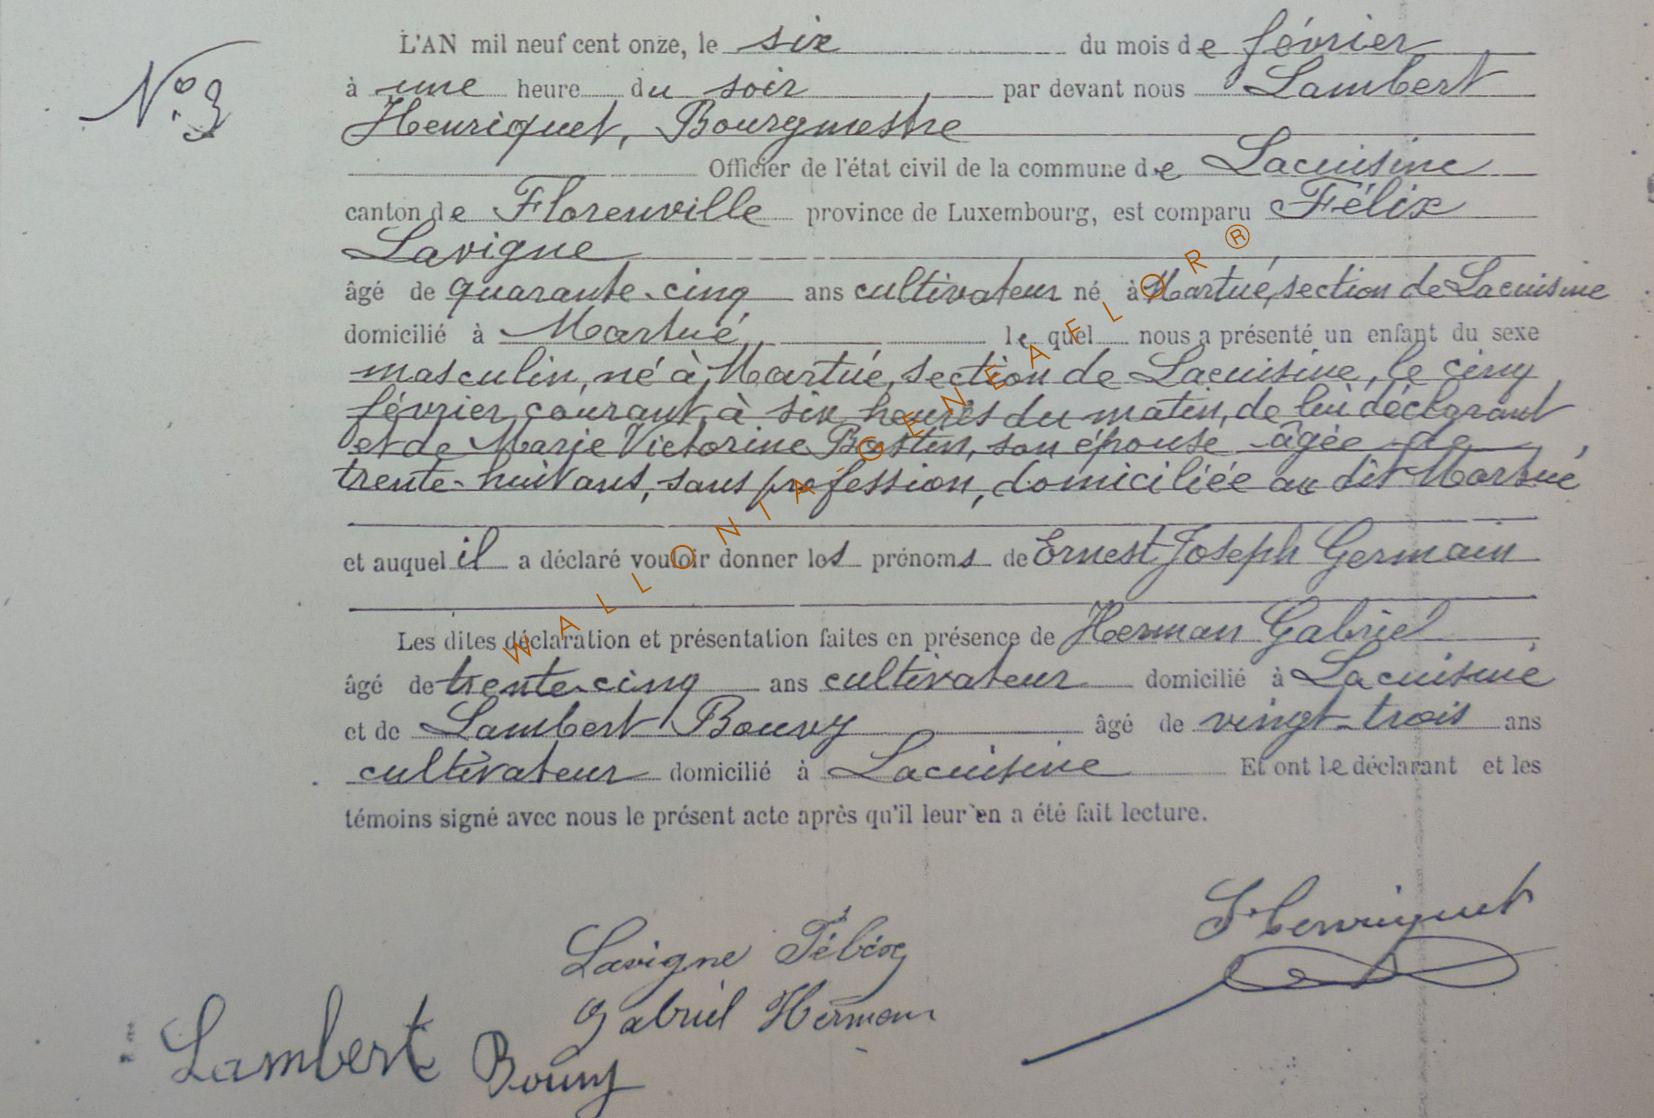 N° 3
L'AN mil neuf cent onze, le six du mois de février
à une heure du soir, par devant nous Lambert
Henriquet, Bourgmestre
Officier de l'état civil de la commune de Lacuisine
canton de Florenville province de Luxembourg, est comparu Félix
Lavigne
âgé de quarante-cinq ans cultivateur né à Martué, section de Lacuisine
domicilié à Martué, lequel nous a présenté un enfant du sexe
masculin, né à Martué, section de Lacuisine, le cinq
février courant, à six heures du matin, de lui déclarant
et de Marie Victorine Bastin, son épouse âgée de
trente-huit ans, sans profession, domiciliée au dit Martué
et auquel il a déclaré vouloir donner les prénoms de Ernest Joseph Germain
Les dites déclaration et présentation faites en présence de Herman Gabriel
âgé de trente-cinq ans cultivateur domicilié à Lacuisine
et de Lambert Bouvy âgé de vingt-trois ans
cultivateur domicilié à Lacuisine Et ont le déclarant et les
témoins signé avec nous le présent acte après qu'il leur en a été fait lecture.
L Henriquet
Lavigne Félix
Gabriel Herman
Lambert Bouvy
WALLONIA-GENEAFLOR®